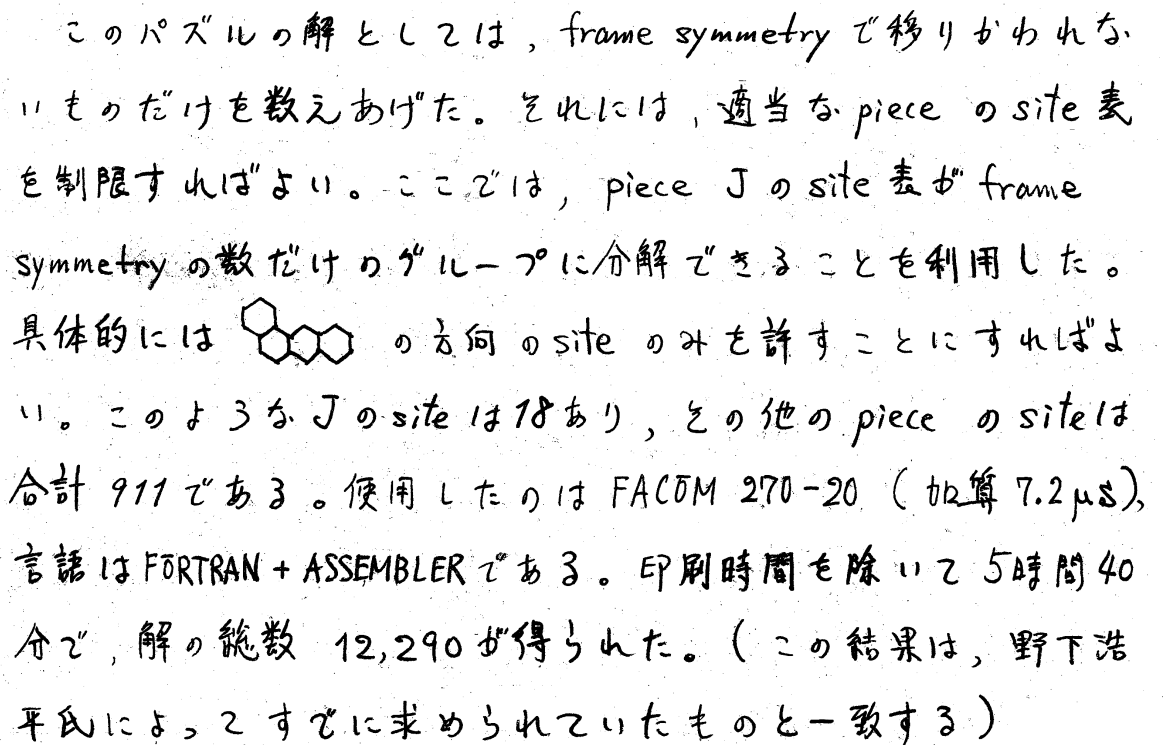 このパズルの解としては, frame symmetry で移りかわれな
いものだけを数えあげた。それには, 適当な piece の site 表
を制限すればよい。ここでは, piece J の site 表が frame
symmetry の数だけのグループに分解できることを利用した。
具体的には の方向の site のみを許すことにすればよ
い。このような J の site は 18 あり, その他の piece の site は
合計 911 である。使用したのは FACOM 270-20 (加算 7.2 μs),
言語は FORTRAN + ASSEMBLER である。印刷時間を除いて 5時間 40
分で, 解の総数 12,290 が得られた。(この結果は, 野下浩
平氏によってすでに求められていたものと一致する)